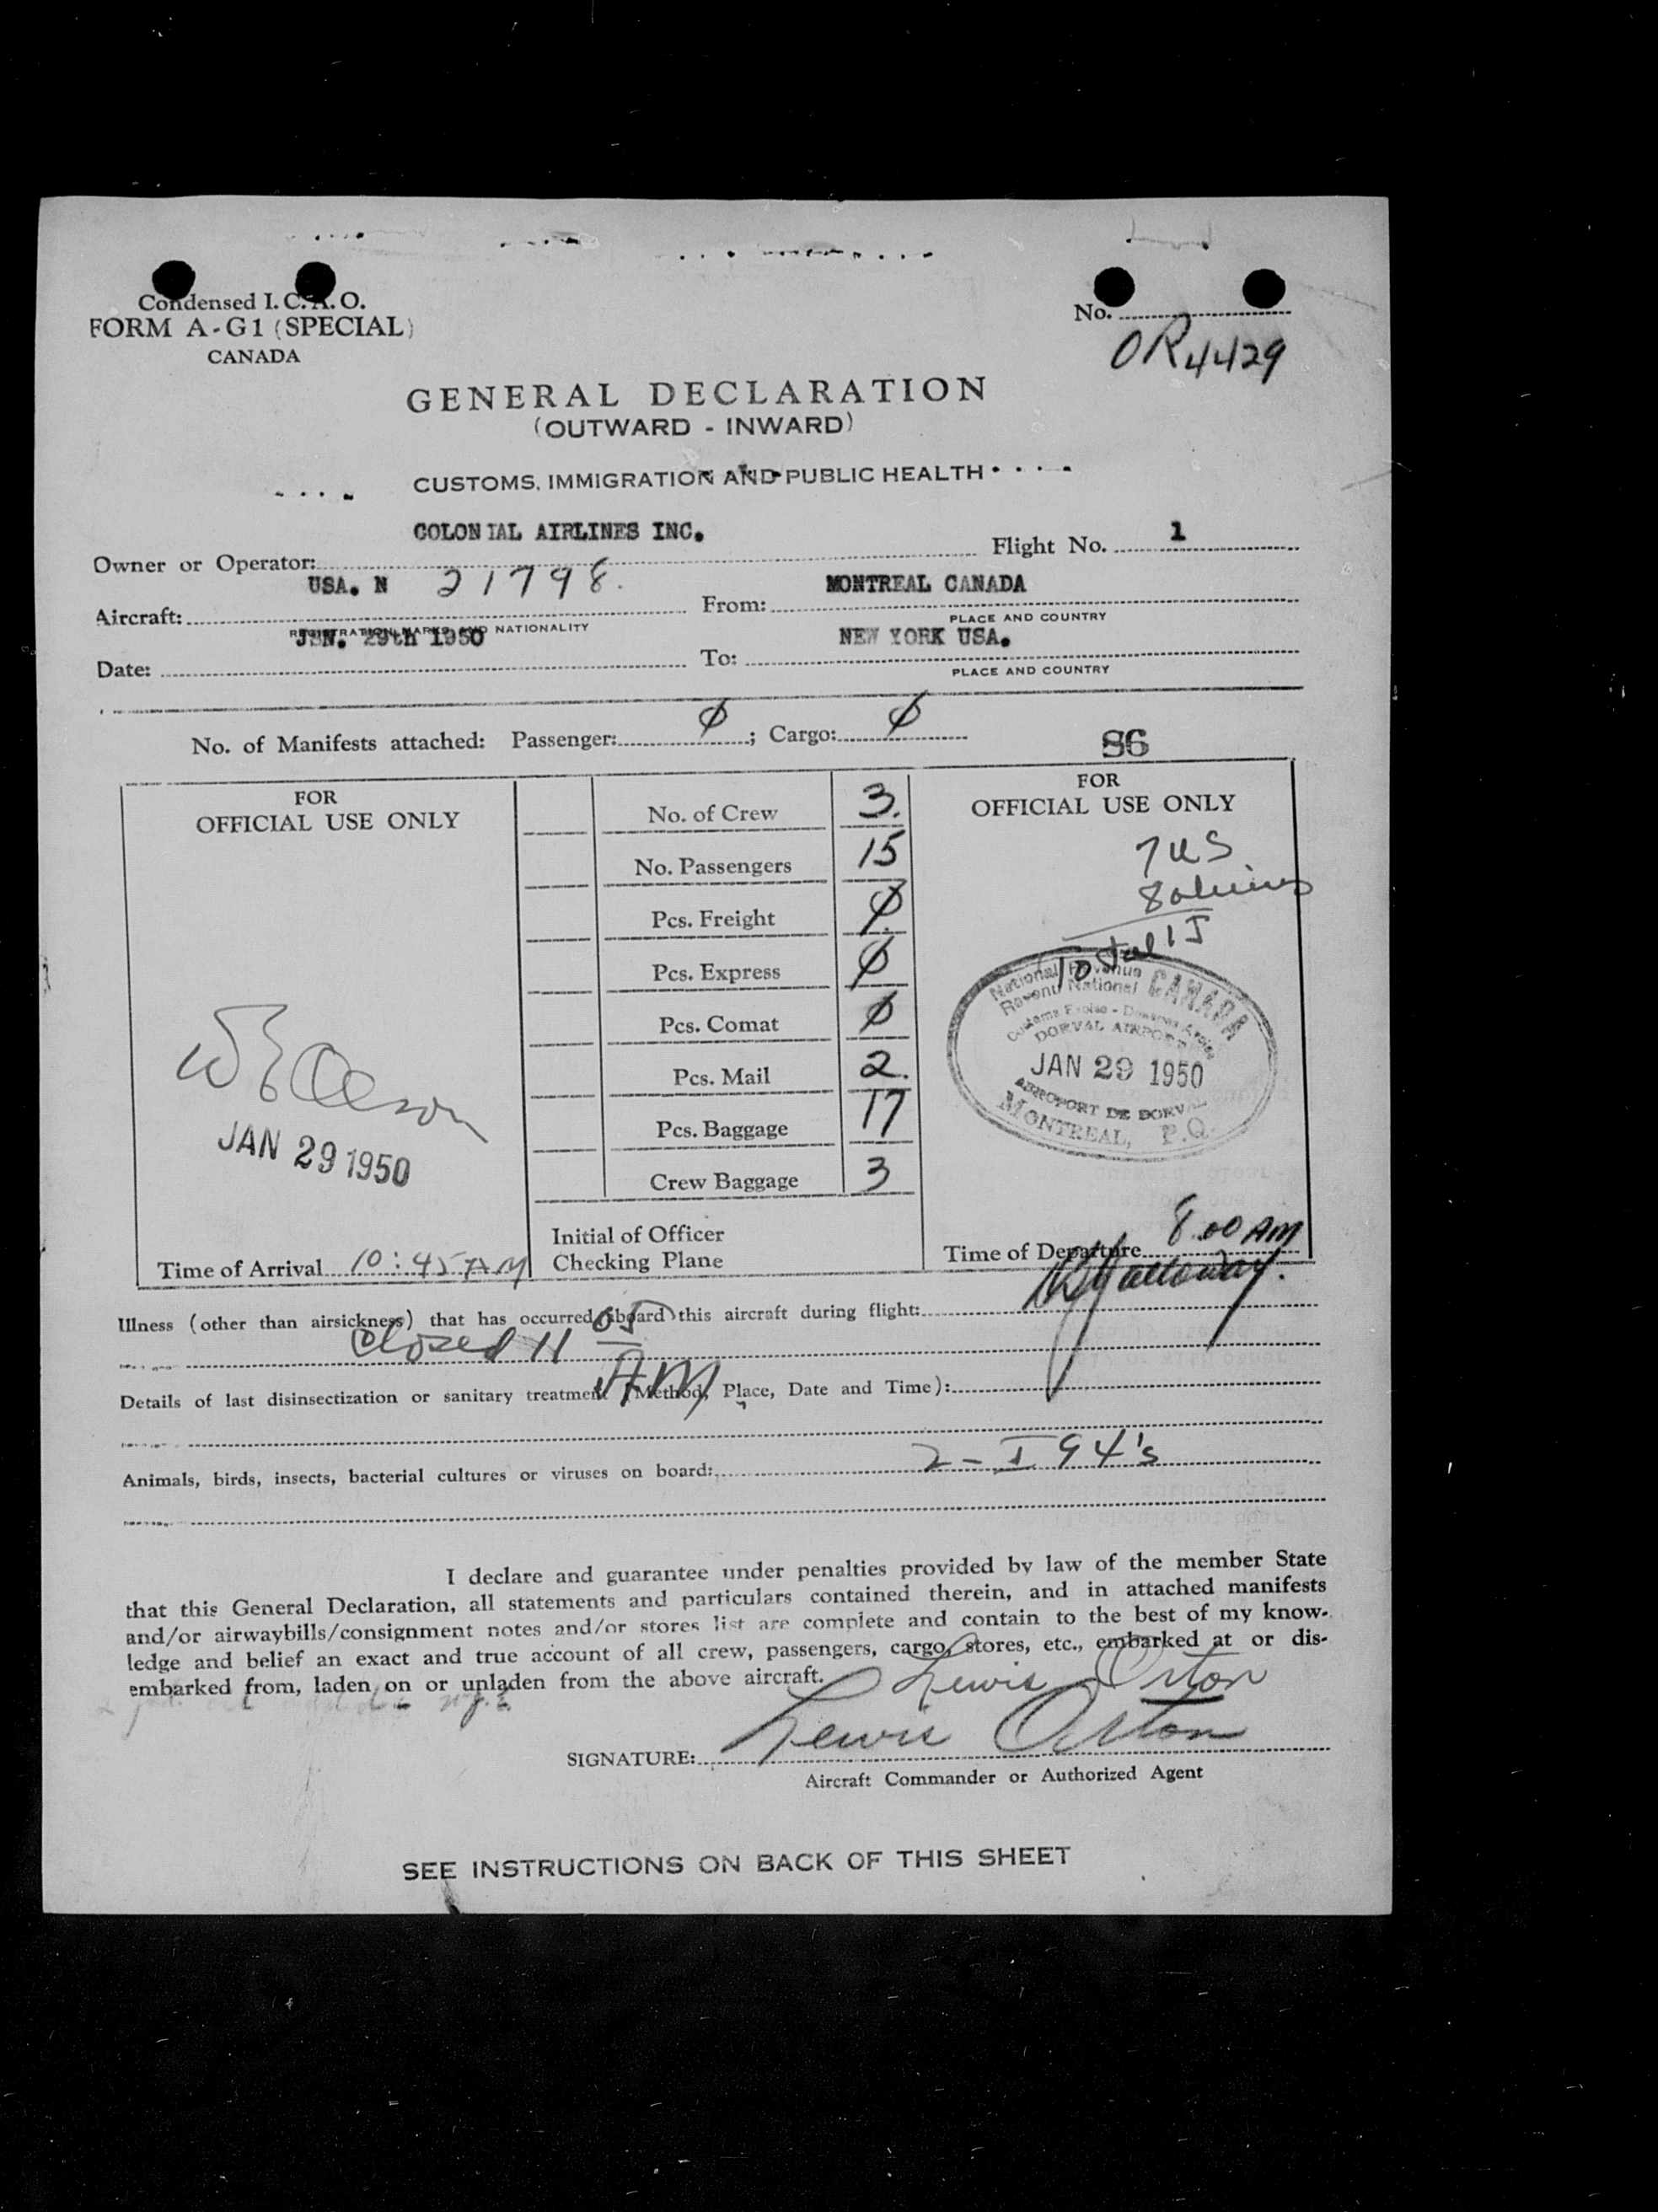 Condensed I. C. A. O.
FORM A-G1 (SPECIAL)
CANADA
No.
OR4429
GENERAL DECLARATION
(OUTWARD - INWARD)
CUSTOMS, IMMIGRATION AND PUBLIC HEALTH
Owner or Operator: COLONIAL AIRLINES INC. Flight No. 1
Aircraft: USA. N 21798. From: MONTREAL CANADA
REGISTRATION MARKS AND NATIONALITY PLACE AND COUNTRY
Date: JAN. 29th 1950 To: NEW YORK USA.
PLACE AND COUNTRY
No. of Manifests attached: Passenger: Ø; Cargo: Ø
86
FOR
OFFICIAL USE ONLY
No. of Crew 3.
No. Passengers 15
Pcs. Freight Ø
Pcs. Express Ø
Pcs. Comat Ø
Pcs. Mail 2.
Pcs. Baggage 17
Crew Baggage 3
Initial of Officer
Checking Plane
JAN 29 1950
Time of Arrival 10:45 AM
FOR
OFFICIAL USE ONLY
7 US
8 aliens
Total 15
National Revenue
Revenu National
CANADA
DORVAL AIRPORT
JAN 29 1950
AEROPORT DE DORVAL
MONTREAL, P.Q.
Time of Departure 8.00 AM
Illness (other than airsickness) that has occurred aboard this aircraft during flight:
Closed 11 05
AM
Details of last disinsectization or sanitary treatment (Method, Place, Date and Time):
Animals, birds, insects, bacterial cultures or viruses on board: 2 - I 94's
I declare and guarantee under penalties provided by law of the member State
that this General Declaration, all statements and particulars contained therein, and in attached manifests
and/or airwaybills/consignment notes and/or stores list are complete and contain to the best of my know-
ledge and belief an exact and true account of all crew, passengers, cargo, stores, etc., embarked at or dis-
embarked from, laden on or unladen from the above aircraft.
Lewis Orton
SIGNATURE: Lewis Orton
Aircraft Commander or Authorized Agent
SEE INSTRUCTIONS ON BACK OF THIS SHEET